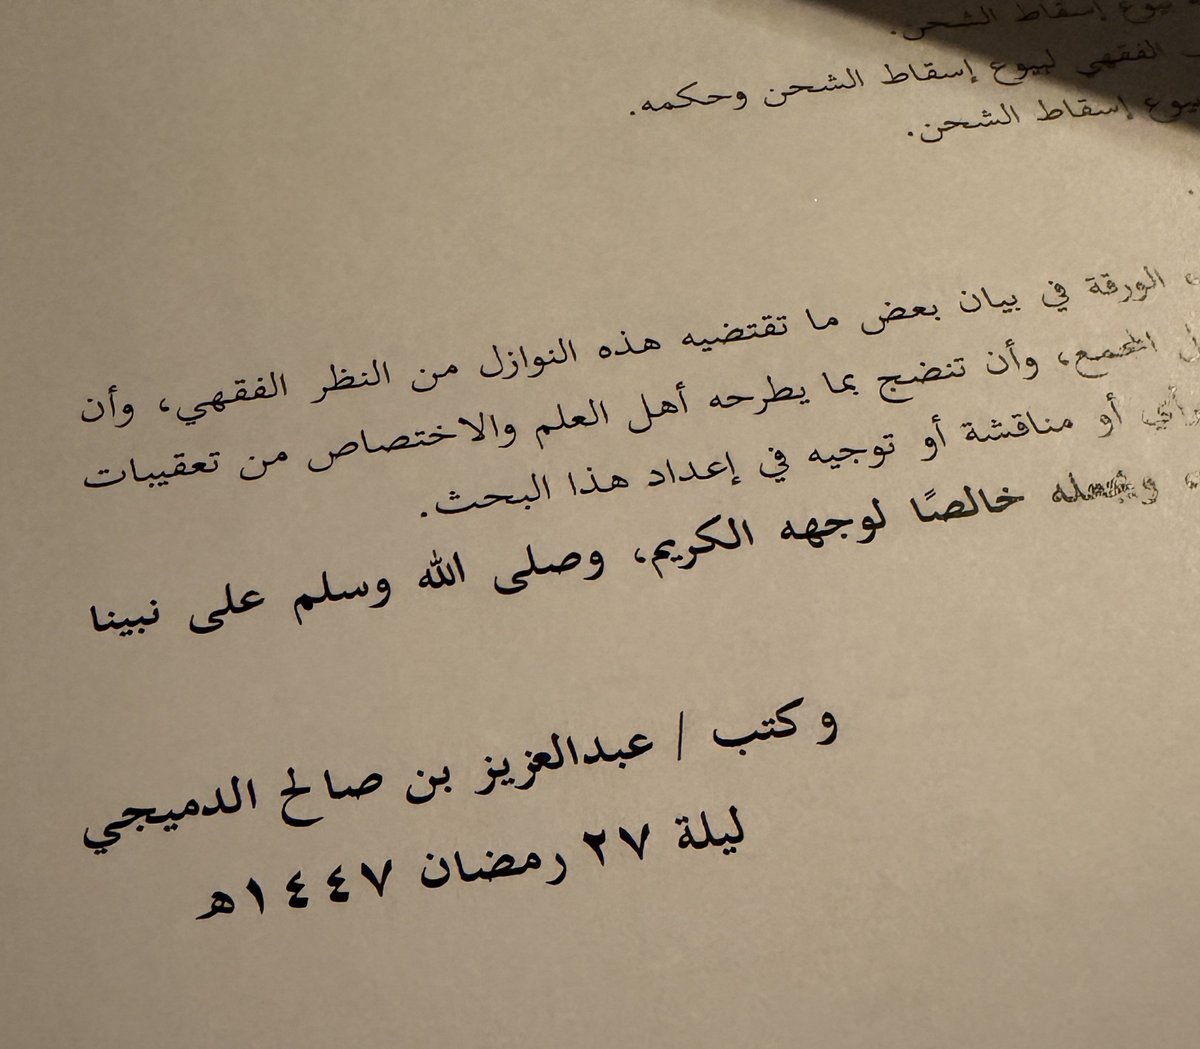 بيوع إسقاط الشحن.
الفقهي لبيوع إسقاط الشحن وحكمه.
بيوع إسقاط الشحن.
الورقة في بيان بعض ما تقتضيه هذه النوازل من النظر الفقهي، وأن
الجميع، وأن تنضج بما يطرحه أهل العلم والاختصاص من تعقيبات
أو مناقشة أو توجيه في إعداد هذا البحث.
خالصًا لوجهه الكريم، وصلى الله وسلم على نبينا
وكتب / عبدالعزيز بن صالح الدميجي
ليلة ٢٧ رمضان ١٤٤٧هـ